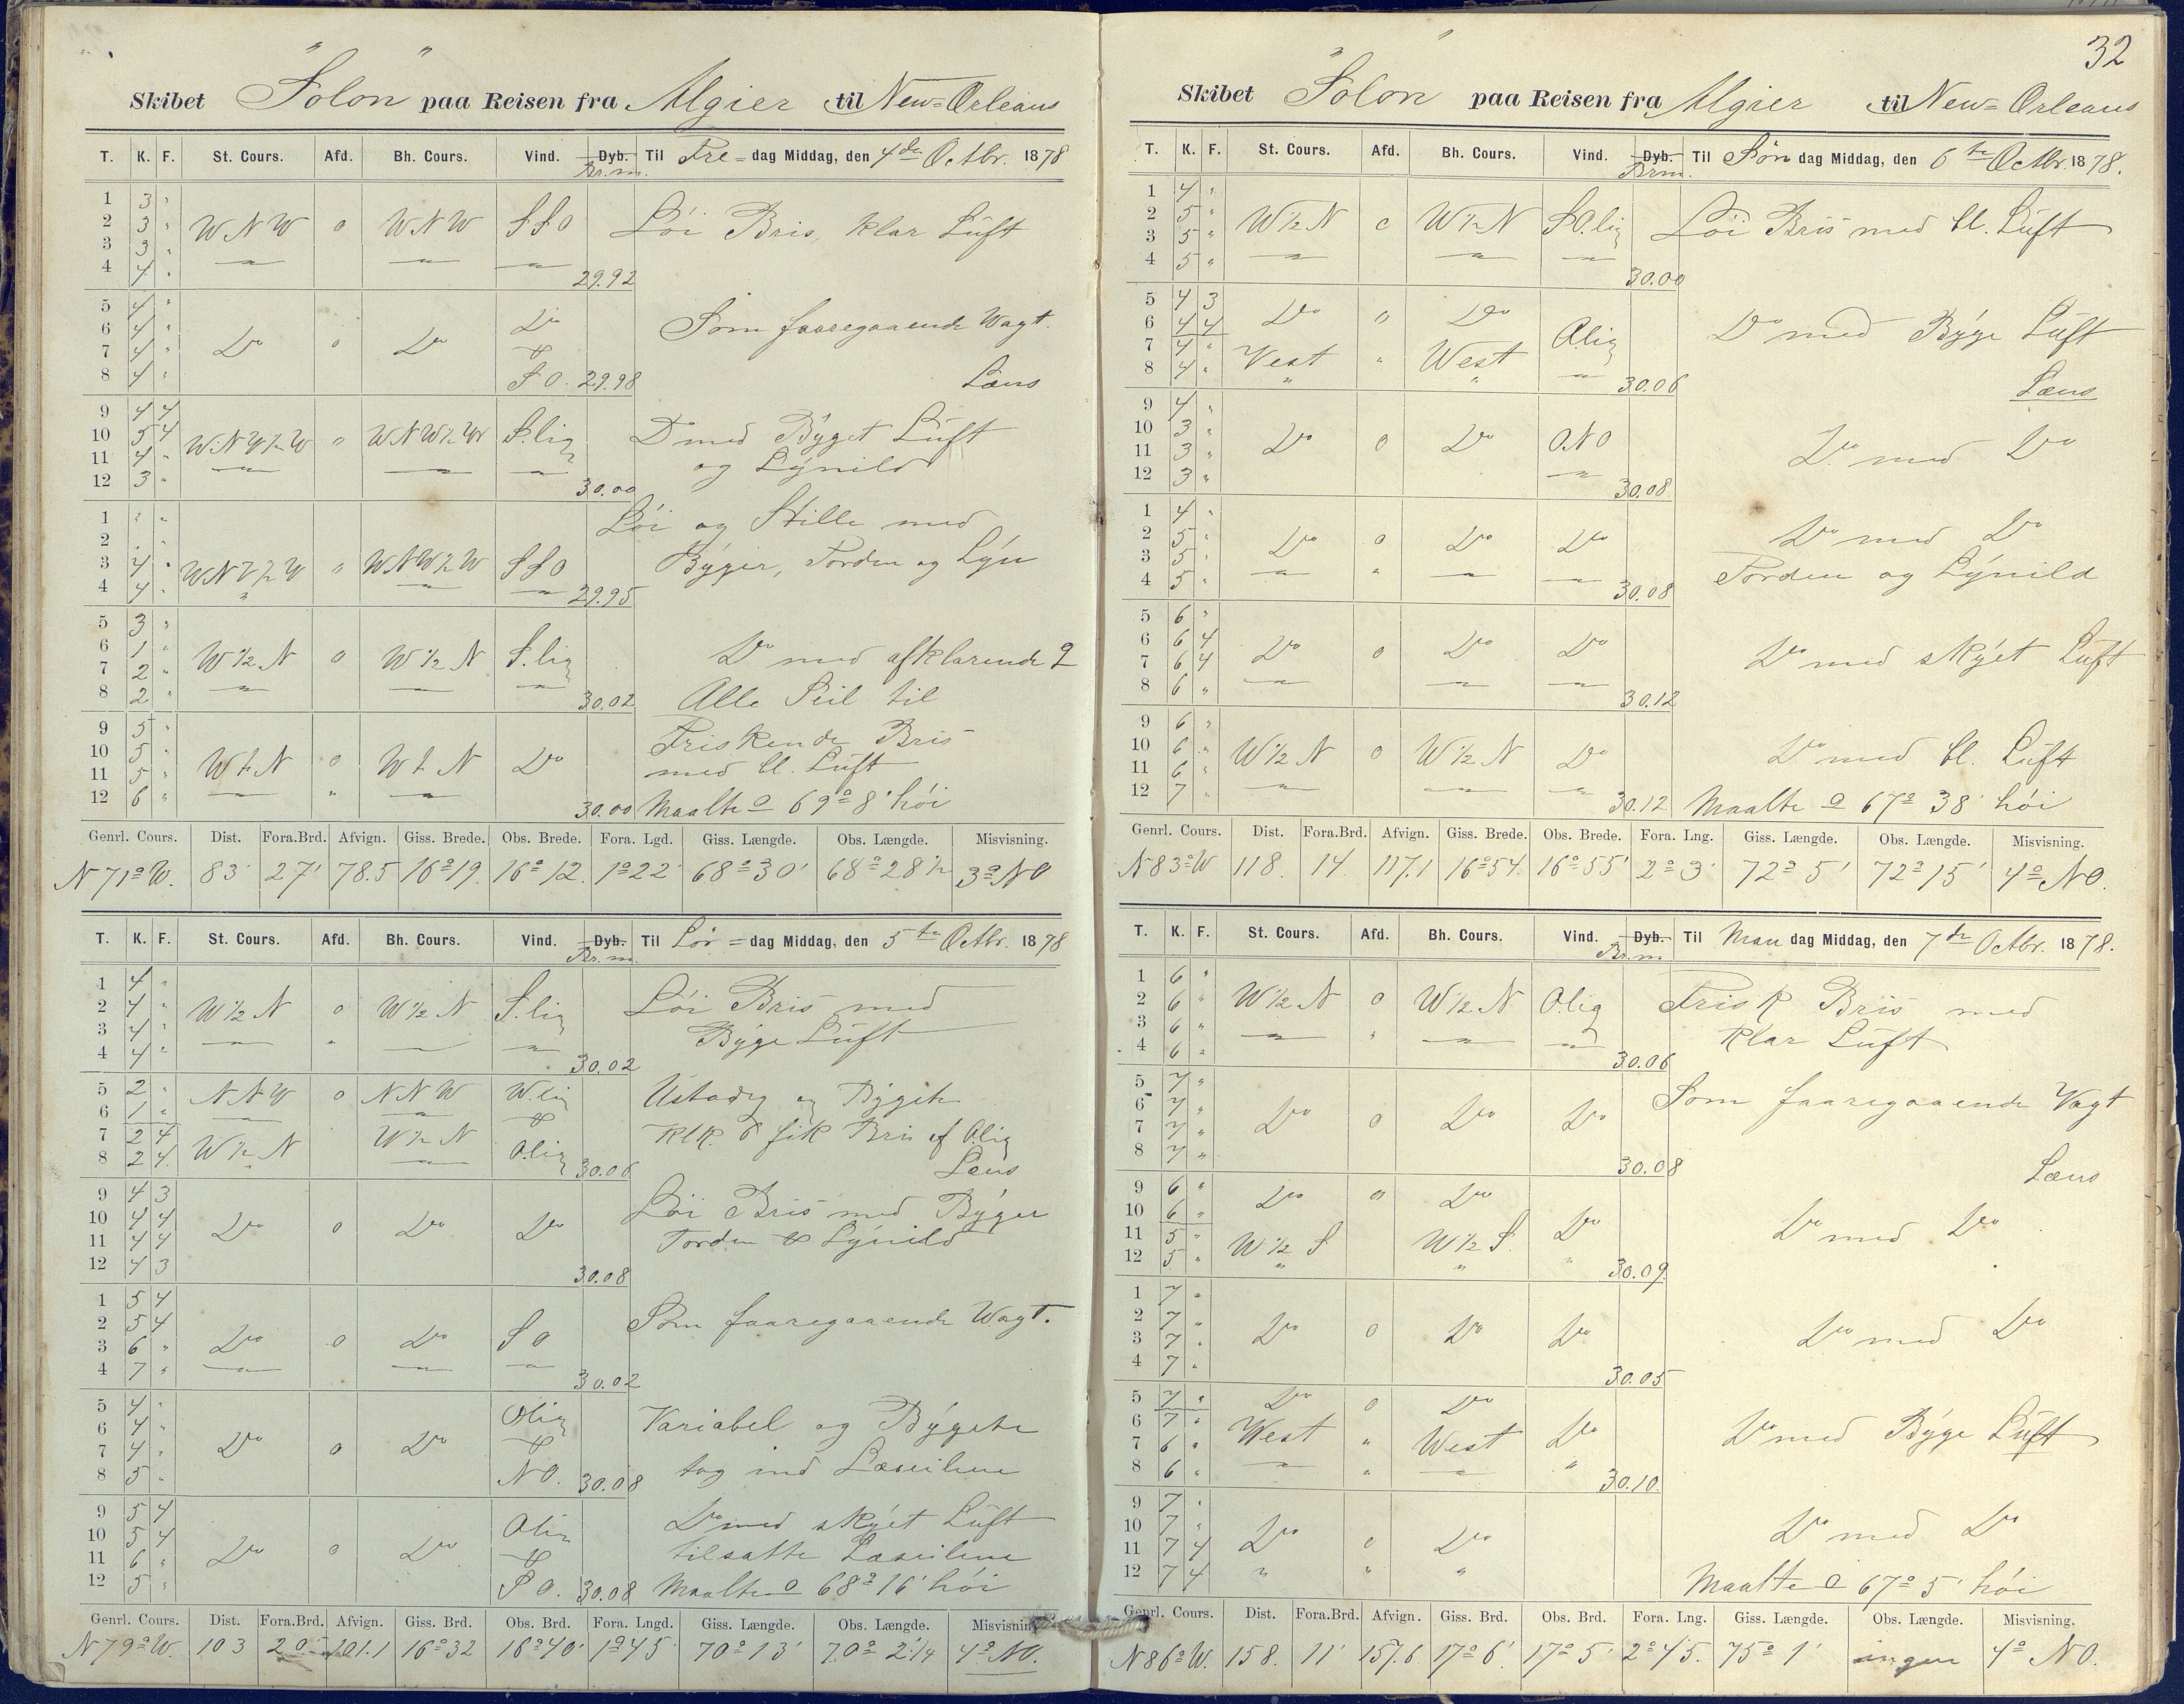 32
Skibet "Solon" paa Reisen fra Algier til New=Orleans
T. K. F. St. Cours. Afd. Bh. Cours. Vind. Dyb. Br.m. Til Fre=dag Middag, den 4de Octbr. 1878
1 3 "
2 3 " WNW o WNW SSO Löi Bris, klar Luft
3 3 "
4 4 " 29.92
5 4 "
6 4 " Do o Do Do Som faaregaaende Wagt.
7 4 " &
8 4 " SO. 29.98 Læns
9 4 4
10 5 4 WNW½W o WNW½W S.lig Do med Byget Luft
11 4 " og Lynild
12 3 " 30.00
1 " " Löi og Stille med
2 " "
3 4 " WNW½W o WNW½W SSO Byger, Torden og Lyn
4 4 " 29.95
5 3 "
6 1 " W½N o W½N S.lig Do med afklarende
7 2 "
8 2 " 30.02 Alle Seil til
9 5 " Friskende Bris
10 5 " WtN o WtN Do
11 5 " med bl. Luft
12 6 " 30.00 Maalte o 69° 8' höi
Genrl. Cours. Dist. Fora.Brd. Afvign. Giss. Brede. Obs. Brede. Fora. Lgd. Giss. Længde. Obs. Længde. Misvisning.
N 71° W. 83' 27' 78.5 16°19. 16° 12. 1°22' 68°30' 68°28½ 3° NO
T. K. F. St. Cours. Afd. Bh. Cours. Vind. Dyb. Br.m. Til Lör=dag Middag, den 5te Octbr. 1878
1 4 "
2 4 " W½N o W½N S.lig Löi Bris med
3 4 " Byge Luft
4 4 " 30.02
5 2 " NNW o NNW W.lig Ustadig og Bygete
6 1 " &
7 2 4 W½N W½N O.lig Klk. 6 fik Bris af O.lig
8 2 4 30.06 Læns
9 4 3
10 4 4 Do o Do Do Löi Bris med Byger
11 4 4 Torden & Lynild
12 4 3 30.08
1 5 4
2 5 4 Do o Do SO Som faaregaaende Wagt.
3 6 "
4 7 " 30.02
5 4 " O.lig Variabel og Bygete
6 4 "
7 4 " Do o Do &
8 5 " NO. 30.08 tog ind Læseilene
9 5 4 O.lig Do med skyet Luft
10 5 4
11 6 " Do o Do & tilsatte Læseilene
12 5 " SO. 30.08 Maalte o 68° 16' höi
Genrl. Cours. Dist. Fora.Brd. Afvign. Giss. Brd. Obs. Brd. Fora. Lngd. Giss. Længde. Obs. Længde. Misvisning
N 79° W. 103 20 101.1 16°32 16°40' 1°45' 70° 13' 70° 2'¼ 4° NO.
Skibet "Solon" paa Reisen fra Algier til New=Orleans
T. K. F. St. Cours. Afd. Bh. Cours. Vind. Dyb. Brm. Til Søn dag Middag, den 6te Octbr. 1878.
1 4 "
2 5 " W½N o W½N SO.lig Löi Bris med bl. Luft
3 5 "
4 5 " 30.00
5 4 3 Do o Do
6 4 4 O.lig Do med Byge Luft
7 4 " Vest " West
8 4 " 30.06 Læns
9 4 "
10 3 " Do o Do ONO Do med Do
11 3 "
12 3 " 30.08
1 4 "
2 5 " Do o Do Do Do med Do
3 5 " Torden og Lynild
4 5 " 30.08
5 6 "
6 6 4 Do o Do Do Do med skyet Luft
7 6 4
8 6 " 30.12
9 6 "
10 6 " W½N o W½N Do Do med bl. Luft
11 6 "
12 7 " 30.12 Maalte o 67° 38' höi
Genrl. Cours. Dist. Fora.Brd. Afvign. Giss. Brede. Obs. Brede. Fora. Lng. Giss. Længde. Obs. Længde. Misvisning.
N 83° W 118. 14. 117.1 16°54. 16°55' 2° 3' 72° 5' 72° 15' 4° NO.
T. K. F. St. Cours. Afd. Bh. Cours. Vind. Dyb. Br.m Til Man dag Middag, den 7de Octbr. 1878.
1 6 "
2 6 " W½N o W½N O.lig Frisk Bris med
3 6 " klar Luft
4 6 " 30.06
5 7 " Som faaregaaende Vagt
6 7 "
7 7 " Do o Do Do
8 7 " 30.08 Læns
9 6 " Do o Do
10 6 " Do Do med Do
11 5 " W½S W½S
12 5 " 30.09
1 7 "
2 7 " Do o Do Do Do med Do
3 7 "
4 7 " 30.05
5 7 " Do o Do
6 7 " West " West Do Do med Byge Luft
7 6 "
8 6 " 30.10.
9 7 "
10 7 " Do o Do Do med Do
11 7 4
12 7 4 Maalte o 67° 5' höi
Genrl. Cours. Dist. Fora.Brd. Afvign. Giss. Brd. Obs. Brd. Fora. Lng. Giss. Længde. Obs. Længde. Misvisning.
N 86° W. 158. 11' 157.6 17° 6' 17° 5' 2° 45. 75° 1' ingen 4° NO.